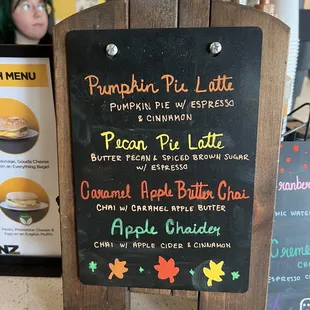 Pumpkin Pie Latte
PUMPKIN PIE W/ ESPRESSO
& CINNAMON
Pecan Pie Latte
BUTTER PECAN & SPICED BROWN SUGAR
W/ ESPRESSO
Caramel Apple Butter Chai
CHAI W/ CARAMEL APPLE BUTTER
Apple Chaider
CHAI W/ APPLE CIDER & CINNAMON
MENU